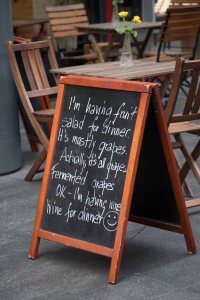 I'm having fruit
salad for dinner.
It's mostly grapes
Actually it's all grapes
Fermented grapes
OK - I'm having wine
Wine for dinner